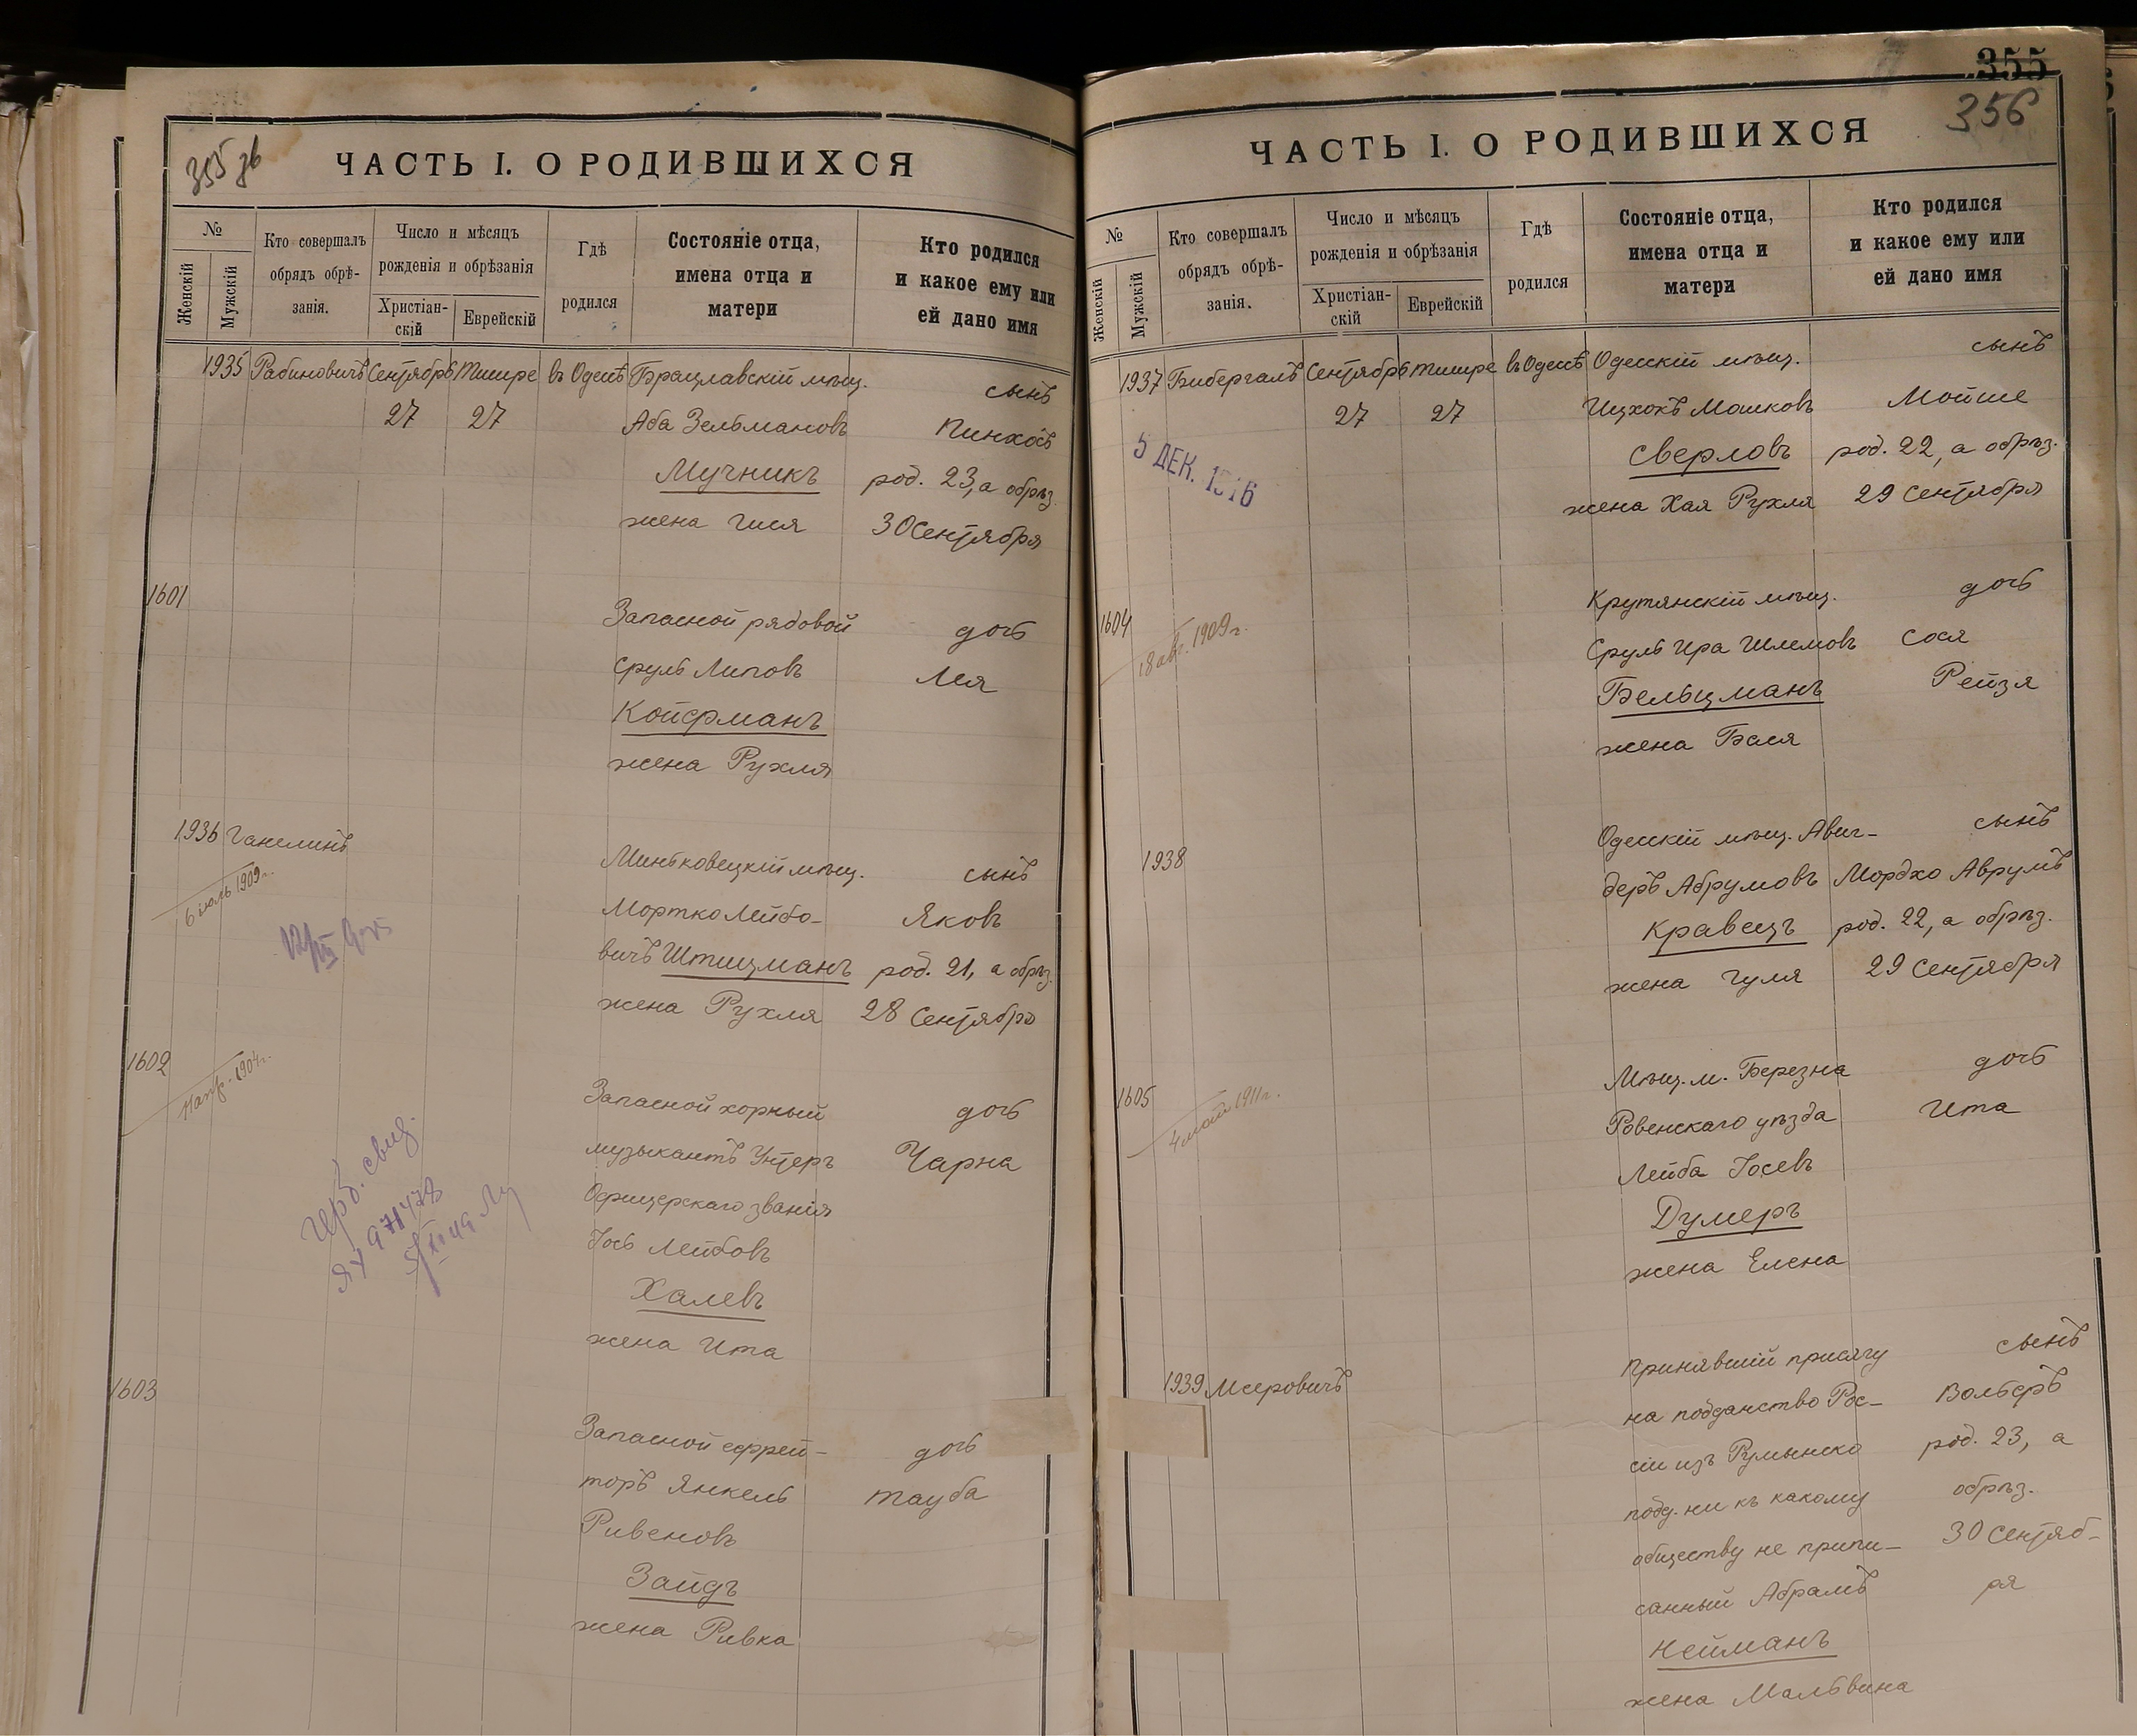 355 зв
ЧАСТЬ I. О РОДИВШИХСЯ
№
Женскій
Мужскій
Кто совершалъ
обрядъ обрѣ-
занія.
Число и мѣсяцъ
рожденія и обрѣзанія
Христіан-
скій
Еврейскій
Гдѣ
родился
Состояніе отца,
имена отца и
матери
Кто родился
и какое ему или
ей дано имя
1935 Рабиновичъ Сентябрь Тишре въ Одессѣ Брацлавскій мѣщ. сынъ
27 27 Аба Зельмановъ Пинхосъ
Мучникъ род. 23, а обрѣз.
жена Гися 30 Сентября
1601 Запасной рядовой дочь
Сруль Липовъ Лея
Койфманъ
жена Рухля
1936 Ганелинъ Миньковецкій мѣщ. сынъ
6 іюль 1909 г. Мортко Лейбо- Яковъ
вичъ Штицманъ род. 21, а обрѣз.
жена Рухля 28 Сентября
1602 1904 г. Запасной хорный дочь
музыкантъ Унтеръ Чарна
Офицерскаго званія
Іось Лейбовъ
Халевъ
жена Ита
свид.
971478
1603 Запасной ефрей- дочь
торъ Янкель Тауба
Рувеновъ
Зайдъ
жена Ривка
355
356
ЧАСТЬ I. О РОДИВШИХСЯ
№
Женскій
Мужскій
Кто совершалъ
обрядъ обрѣ-
занія.
Число и мѣсяцъ
рожденія и обрѣзанія
Христіан-
скій
Еврейскій
Гдѣ
родился
Состояніе отца,
имена отца и
матери
Кто родился
и какое ему или
ей дано имя
1937 Бибергалъ Сентябрь Тишре въ Одессѣ Одесскій мѣщ. сынъ
27 27 Ицхокъ Мошковъ Мойше
5 ДЕК. 1916 Сверловъ род. 22, а обрѣз.
жена Хая Рухля 29 Сентября
1604 Крутянскій мѣщ. дочь
18 авг. 1909 г. Сруль Ира Шлемовъ Сося
Бельцманъ Рейзя
жена Бася
1938 Одесскій мѣщ. Авиг- сынъ
деръ Абрумовъ Мордхо Аврумъ
Кравецъ род. 22, а обрѣз.
жена Гуля 29 Сентября
1605 Мѣщ. м. Березна дочь
4 май 1911 г. Ровенскаго уѣзда Ита
Лейба Іосевъ
Думеръ
жена Елена
1939 Мееровичъ Принявшій присягу сынъ
на подданство Рос- Вольфъ
сіи изъ Румынско род. 23, а
подд. ни къ какому обрѣз.
обществу не припи- 30 Сентяб-
санный Абрамъ ря
Нейманъ
жена Мальвина